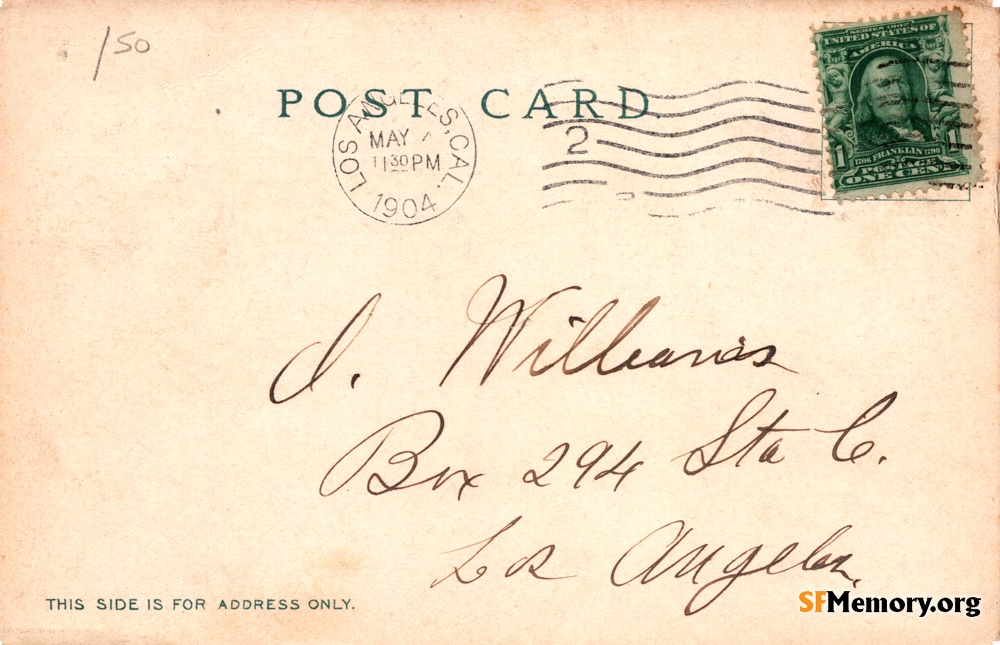 /50
SERIES 1902
UNITED STATES OF
AMERICA
1706 FRANKLIN 1790
1 1
POSTAGE
ONE CENT
POST CARD
LOS ANGELES, CAL.
MAY
11 30 PM
1904
2
Williams
Box 294 Sta C.
Los Angeles,
THIS SIDE IS FOR ADDRESS ONLY.
SFMemory.org